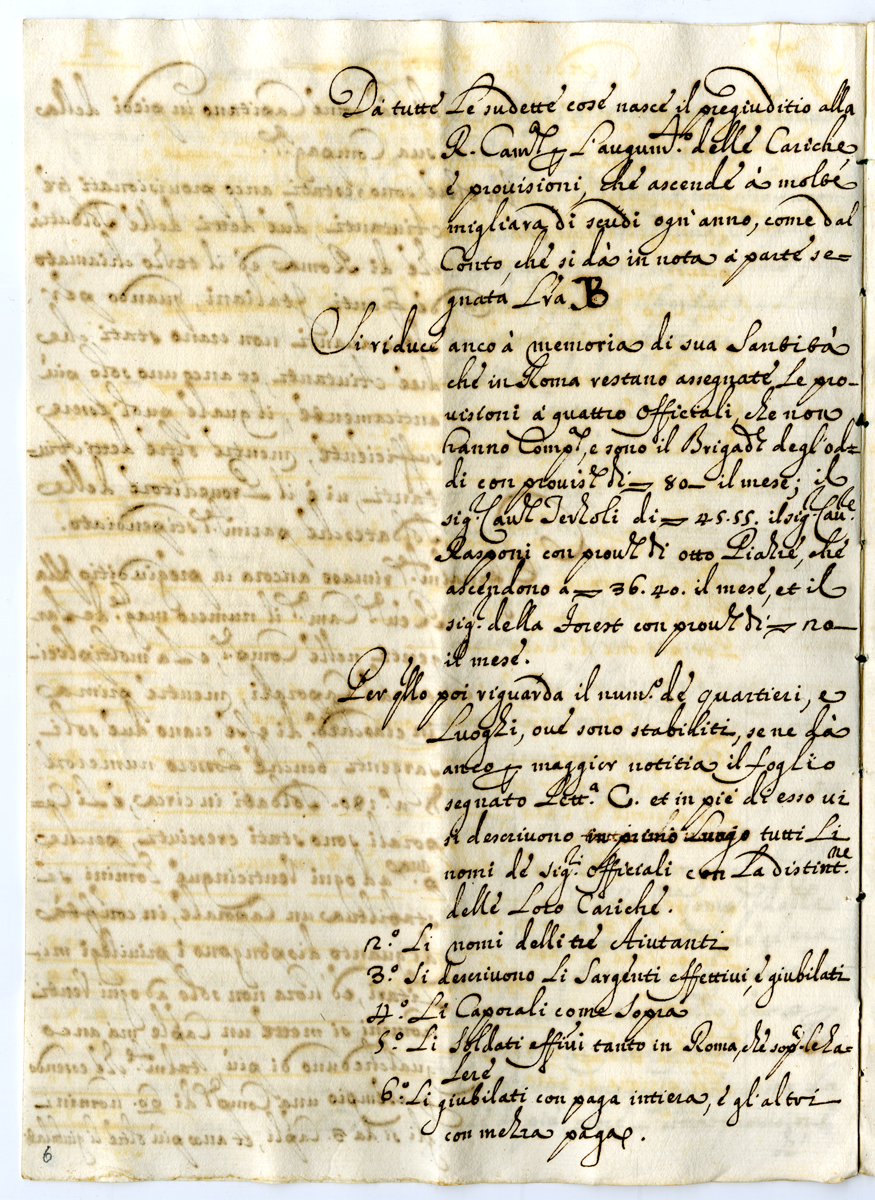 Da tutte le sudette cose nasce il pregiuditio alla
R. Cam.ª p l'augum.to delle Cariche
e provisioni, che ascende à molte
migliara di scudi ogn'anno, come dal
Conto, che si dà in nota à parte se=
gnata Lra B
Si riduce anco à memoria di sua Santità
che in Roma restano assegnate le pro-
visioni à quattro Offitiali, che non
hanno Comp.ª, e sono il Brigad.re degl'od=
di con provis.ne di 80 il mese; il
sig.r Cav.re di 45.55. il sig.r Cav.re
Rasponi con prov.ne di otto Piazze, che
ascendono a 36.40. il mese, et il
sig.r della Forest con prov.ne di 20
il mese.
Per q.llo poi riguarda il num.o de quartieri, e
Luoghi, ove sono stabiliti, se ne dà
anco p maggior notitia il foglio
segnato Lett.a C. et in piè di esso vi
si descrivono in primo luogo tutti li
nomi de sig.ri Offitiali con la distint.ne
delle loro Cariche.
2.o Li nomi delli tre Aiutanti
3.o Si descrivono li Sargenti effettivi, e giubilati
4.o Li Caporali come sopra
5.o Li Soldati eff.ivi tanto in Roma, che
6.o Li giubilati con paga intiera, e gl'altri
con mezza paga.
6